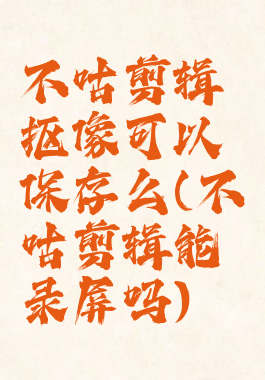 不咕剪辑
抠像可以
保存么(不
咕剪辑能
录屏吗)